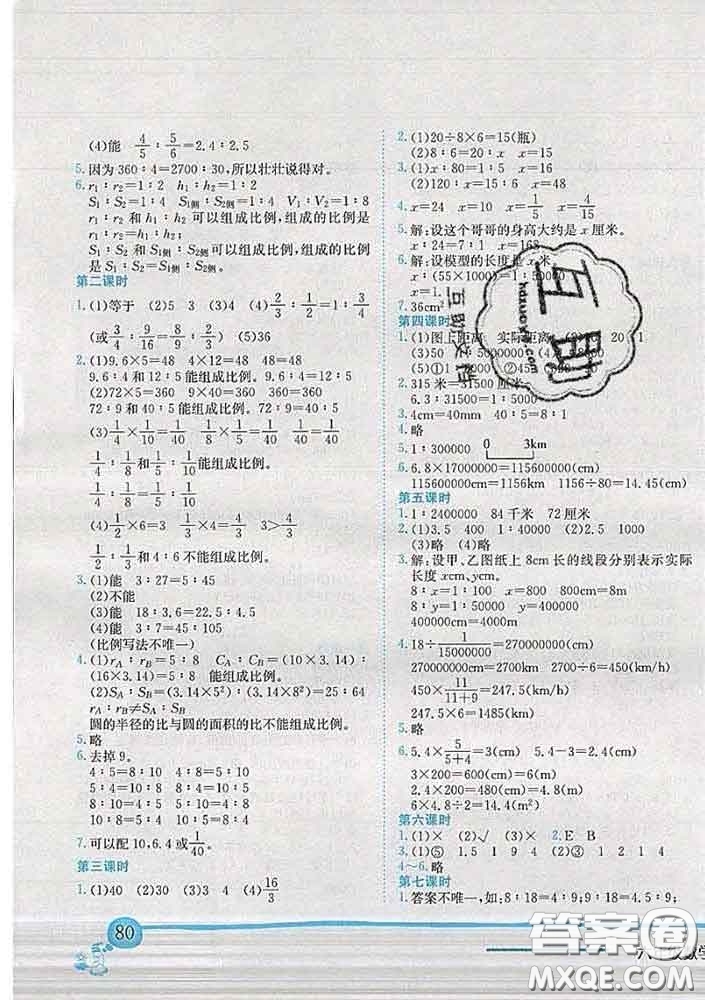 (4)能 4/5∶5/6=2.4∶2.5
5.因为360∶4=2700∶30,所以壮壮说得对。
6.r₁∶r₂=1∶2 h₁∶h₂=1∶2
S₁∶S₂=1∶4 S₁侧∶S₂侧=1∶4 V₁∶V₂=1∶8
r₁∶r₂ 和 h₁∶h₂ 可以组成比例,组成的比例是
r₁∶r₂=h₁∶h₂。
S₁∶S₂ 和 S₁侧∶S₂侧可以组成比例,组成的比例
是 S₁∶S₂=S₁侧∶S₂侧。
第二课时
1.(1)等于 (2)5 3 (3)4 (4)2/3∶1/2=1∶3/4
(或3/4∶9/16=8/9∶2/3) (5)36
2.(1)9.6×5=48 4×12=48 48=48
9.6∶4和12∶5能组成比例。
(2)72×5=360 9×40=360 360=360
72∶9和40∶5能组成比例。
(3)1/4×1/10=1/40 1/8×1/5=1/40 1/40=1/40
1/4∶1/8和1/5∶1/10能组成比例。
1/4∶1/8=1/5∶1/10
(4)1/2×6=3 1/3×4=4/3 3>4/3
1/2∶1/3和4∶6不能组成比例。
3.(1)能 3∶27=5∶45
(2)不能
(3)能 18∶3.6=22.5∶4.5
(4)能 7∶3=45∶105
(比例写法不唯一)
4.(1)r_A∶r_B=5∶8 C_A∶C_B=(10×3.14)∶
(16×3.14)=5∶8 能组成比例。
(2)S_A∶S_B=(3.14×5²)∶(3.14×8²)=25∶64
r_A∶r_B≠S_A∶S_B
圆的半径的比与圆的面积的比不能组成比例。
5.略
6.去掉9。
4∶5=8∶10 5∶4=10∶8
4∶8=5∶10 8∶4=10∶5
8∶10=4∶5 10∶8=5∶4
5∶10=4∶8 10∶5=8∶4
7.可以配10,6.4或1/40。
第三课时
1.(1)40 (2)30 (3)8 9 (4)16/3
80
2.(1)20÷8×6=15(瓶)
(2)8∶6=20∶x x=15
3.(1)x∶80=1∶5 x=16
(2)120∶x=8∶1 x=15
4.x=24 x=10 x=1/5 x=4/5
5.解:设这个哥哥的身高大约是 x 厘米。
x∶24=7∶1 x=168
6.解:设模型的长度是 x 厘米。
x∶(55×1000)=1∶
x=1.
7.36cm²
第四课时
1.(1)图上距离 实际距离 (2) 20 1
(3)50
(5)①1
2.315 米=31500 厘米
6.3∶31500=1∶5000
3.4cm=40mm 40∶5=8∶1
4.略
5.1∶300000 0 3km
6.6.8×17000000=115600000(cm)
115600000cm=1156km 1156÷80=14.45(cm)
第五课时
1.1∶2400000 84千米 72厘米
2.(1)3.5 400 1∶40000 (2)2.5 1000
(3)略 (4)略
3.解:设甲、乙图纸上8cm长的线段分别表示实际
长度xcm、ycm。
8∶x=1∶100 x=800 800cm=8m
8∶y=1∶50000 y=400000
400000cm=4000m
4.18÷1/15000000=270000000(cm)
270000000cm=2700km 2700÷6=450(km)
450×11/(11+9)=247.5(km)
247.5×6=1485(km)
5.略
6.5.4×5/(5+4)=3(cm) 5.4-3=2.4(cm)
3×200=600(cm)=6(m)
2.4×200=480(cm)=4.8(m)
6×4.8÷2=14.4(m²)
第六课时
1.(1)× (2)√ (3)× 2.E B
3.(1)⑤ 1.5 1 9 4 (2)③ 1 2 1 4
4~6.略
第七课时
1.答案不唯一,如:8∶18=4∶9;9∶18=4.5∶9;
互助
互助文档
答案圈
MXQE.COM